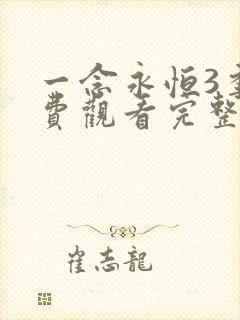 一念永恒3
費觀看完整
崔志龍